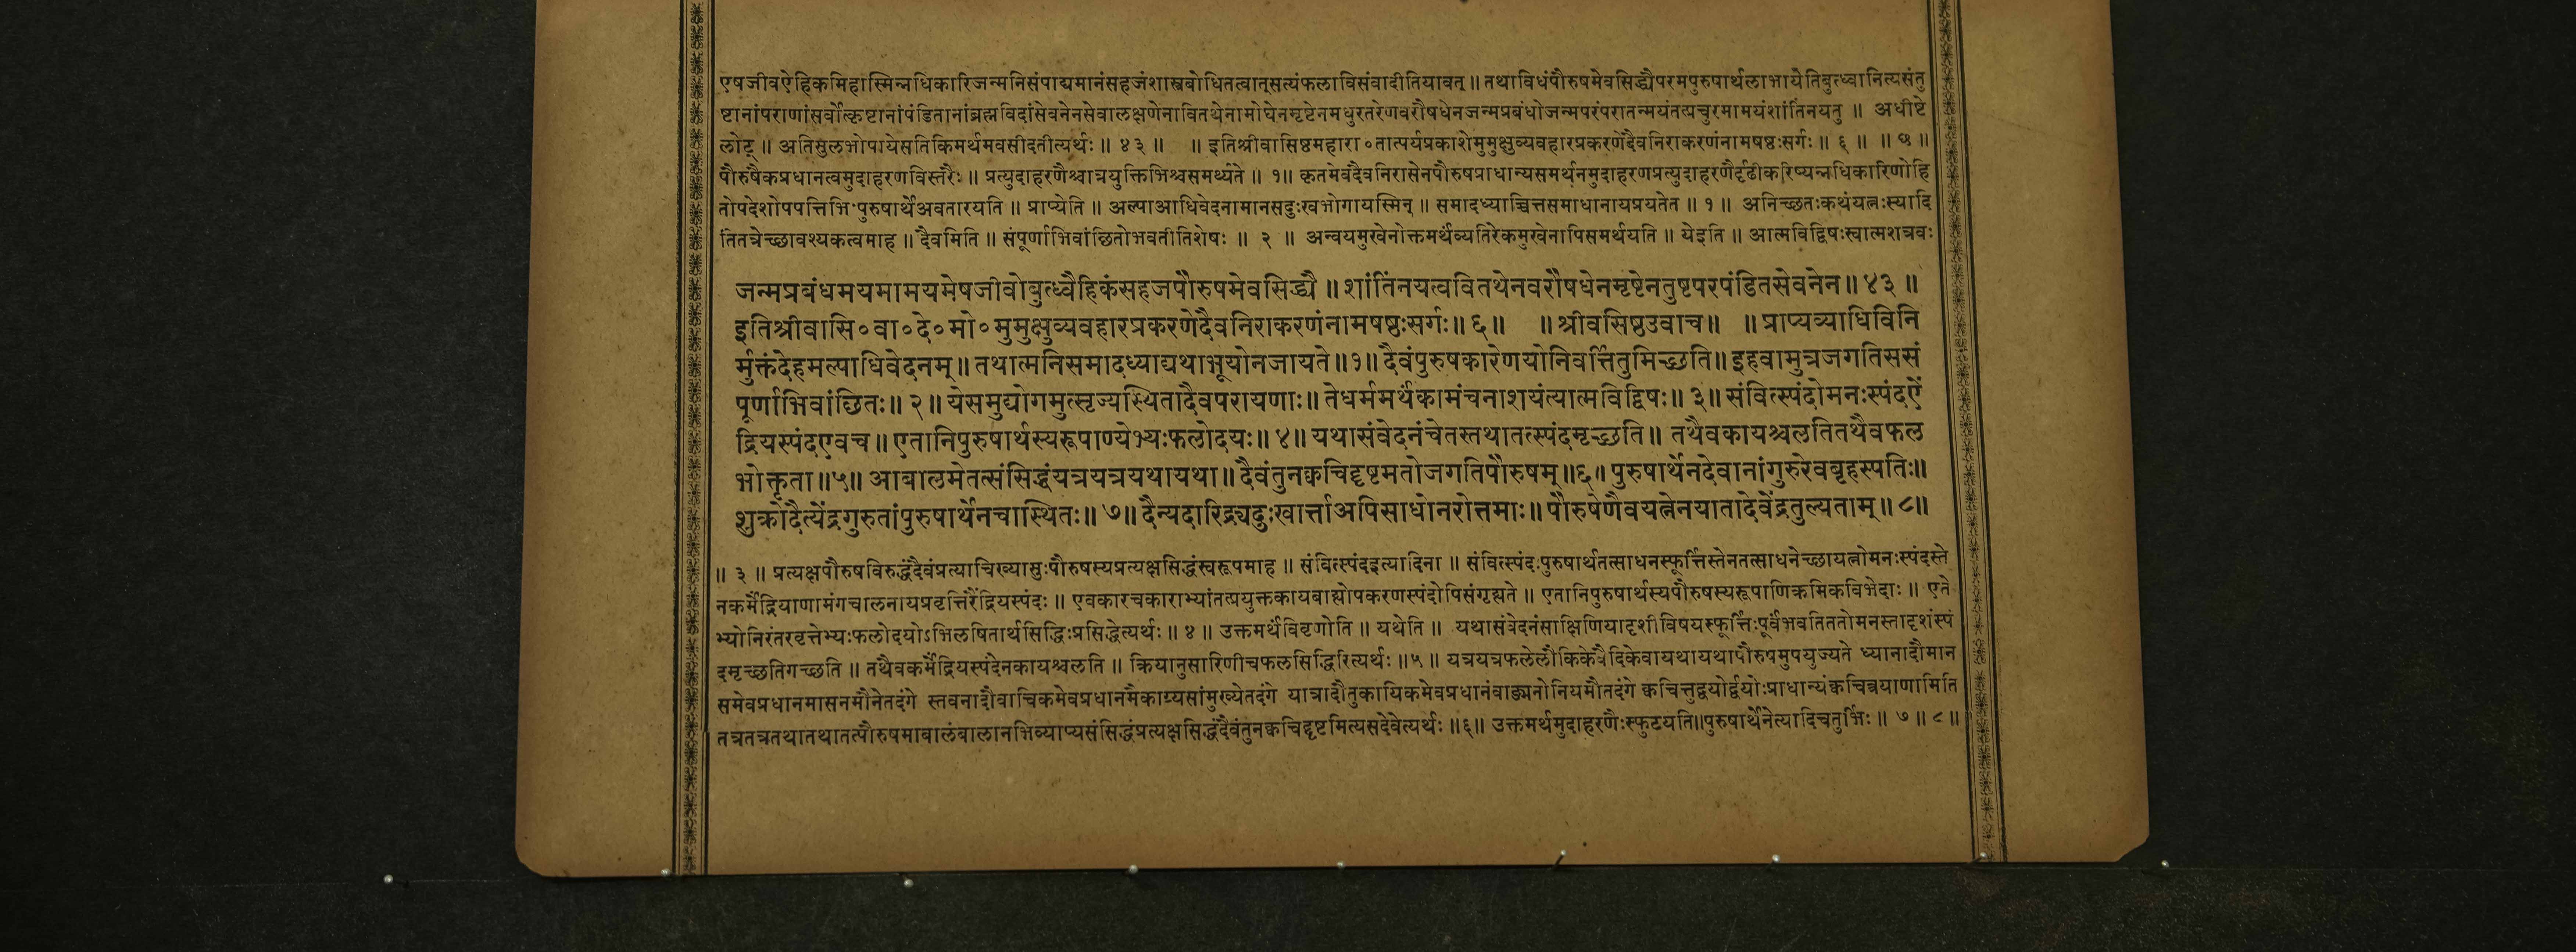 एषजीवऐहिकमिहास्मिन्नधिकारिजन्मनिसंपाद्यमानंसहजंशास्त्रबोधितत्वात्सत्यंफलाविसंवादीतियावत् ॥ तथाविधंपौरुषमेवसिद्ध्यैपरमपुरुषार्थलाभायेतिबुत्ध्वानित्यसंतु
ष्टानांपराणांसर्वोत्कृष्टानांपंडितानांब्रह्मविदांसेवनेनसेवालक्षणेनावितथेनामोघेनमृष्टेनमधुरतरेणवरौषधेनजन्मप्रबंधोजन्मपरंपरातन्मयंतत्प्रचुरमामयंशांतिंनयतु ॥ अधीष्टे
लोट् ॥ अतिसुलभोपायेसतिकिमर्थमवसीदतीत्यर्थः ॥ ४३ ॥ ॥ इतिश्रीवासिष्ठमहारा०तात्पर्यप्रकाशेमुमुक्षुव्यवहारप्रकरणेदैवनिराकरणंनामषष्ठःसर्गः ॥ ६ ॥ ॥ ७ ॥
पौरुषैकप्रधानत्वमुदाहरणविस्तरैः ॥ प्रत्युदाहरणैश्चात्रयुक्तिभिश्चसमर्थ्यते ॥ १॥ कृतमेवंदैवनिरासेनपौरुषप्राधान्यसमर्थनमुदाहरणप्रत्युदाहरणैर्दृढीकरिष्यन्नधिकारिणोहि
तोपदेशोपपत्तिभिःपुरुषार्थेअवतारयति ॥ प्राप्येति ॥ अल्पाआधिवेदनामानसदुःखभोगायस्मिन् ॥ समादध्याच्चित्तसमाधानायप्रयतेत ॥ १ ॥ अनिच्छतःकथंयत्नःस्यादि
तितत्रेच्छावश्यकत्वमाह ॥ दैवमिति ॥ संपूर्णाभिवांछितोभवतीतिशेषः ॥ २ ॥ अन्वयमुखेनोक्तमर्थंव्यतिरेकमुखेनापिसमर्थयति ॥ येइति ॥ आत्मविद्विषःस्वात्मशत्रवः
जन्मप्रबंधमयमामयमेषजीवोबुत्ध्वैहिकंसहजपौरुषमेवसिद्ध्यै ॥ शांतिंनयत्ववितथेनवरौषधेनमृष्टेनतुष्टपरपंडितसेवनेन ॥ ४३ ॥
इतिश्रीवासि०वा०दे०मो०मुमुक्षुव्यवहारप्रकरणेदैवनिराकरणंनामषष्ठःसर्गः ॥ ६ ॥ ॥ श्रीवसिष्ठउवाच ॥ ॥ प्राप्यव्याधिविनि
र्मुक्तंदेहमल्पाधिवेदनम् ॥ तथात्मनिसमादध्याद्यथाभूयोनजायते ॥१॥ दैवंपुरुषकारेणयोनिवर्त्तितुमिच्छति ॥ इहवामुत्रजगतिससं
पूर्णाभिवांछितः ॥ २ ॥ येसमुद्योगमुत्सृज्यस्थितादैवपरायणाः ॥ तेधर्ममर्थंकामंचनाशयंत्यात्मविद्विषः ॥ ३ ॥ संवित्स्पंदोमनःस्पंदऐं
द्रियस्पंदएवच ॥ एतानिपुरुषार्थस्यरूपाण्येभ्यःफलोदयः ॥ ४ ॥ यथासंवेदनंचेतस्तथातत्स्पंदमृच्छति ॥ तथैवकायश्चलतितथैवफल
भोक्तृता ॥५॥ आबालमेतत्संसिद्धंयत्रयत्रयथायथा ॥ दैवंतुनक्वचिद्दृष्टमतोजगतिपौरुषम् ॥६॥ पुरुषार्थेनदेवानांगुरुरेवबृहस्पतिः॥
शुक्रोदैत्येंद्रगुरुतांपुरुषार्थेनचास्थितः ॥ ७ ॥ दैन्यदारिद्र्यदुःखार्त्ताअपिसाधोनरोत्तमाः ॥ पौरुषेणैवयत्नेनयातादेवेंद्रतुल्यताम् ॥ ८॥
॥ ३ ॥ प्रत्यक्षपौरुषविरुद्धंदैवंप्रत्याचिख्यासुःपौरुषस्यप्रत्यक्षसिद्धंस्वरूपमाह ॥ संवित्स्पंदइत्यादिना ॥ संवित्स्पंदःपुरुषार्थतत्साधनस्फूर्त्तिस्तेनतत्साधनेच्छायत्नोमनःस्पंदस्ते
नकर्मेंद्रियाणामंगचालनायप्रवृत्तिरैंद्रियस्पंदः ॥ एवकारचकाराभ्यांतत्प्रयुक्तकायबाह्योपकरणस्पंदोपिसंगृह्यते ॥ एतानिपुरुषार्थस्यपौरुषस्यरूपाणिक्रमिकविभेदाः ॥ एते
भ्योनिरंतरवृत्तेभ्यःफलोदयोऽभिलषितार्थसिद्धिःप्रसिद्धेत्यर्थः ॥ ४ ॥ उक्तमर्थंविवृणोति ॥ यथेति ॥ यथासंवेदनंसाक्षिणियादृशीविषयस्फूर्त्तिःपूर्वंभवतिततोमनस्तादृशंस्पं
दमृच्छतिगच्छति ॥ तथैवकर्मेंद्रियस्पंदेनकायश्चलति ॥ क्रियानुसारिणीचफलसिद्धिरित्यर्थः ॥५ ॥ यत्रयत्रफलेलौकिकेवैदिकेवायथायथापौरुषमुपयुज्यते ध्यानादौमान
समेवप्रधानमासनमौनेतदंगे स्तवनादौवाचिकमेवप्रधानमैकाग्र्यसांमुख्येतदंगे यात्रादौतुकायिकमेवप्रधानंवाङ्मनोनियमौतदंगे क्वचित्तुद्वयोर्द्वयोःप्राधान्यंक्वचित्रयाणामिति
तत्रतत्रतथातथातत्पौरुषमाबालंबालानभिव्याप्यसंसिद्धंप्रत्यक्षसिद्धंदैवंतुनक्वचिद्दृष्टमित्यसदेवेत्यर्थः ॥६॥ उक्तमर्थमुदाहरणैःस्फुटयति॥पुरुषार्थेनेत्यादिचतुर्भिः ॥ ७ ॥ ८ ॥